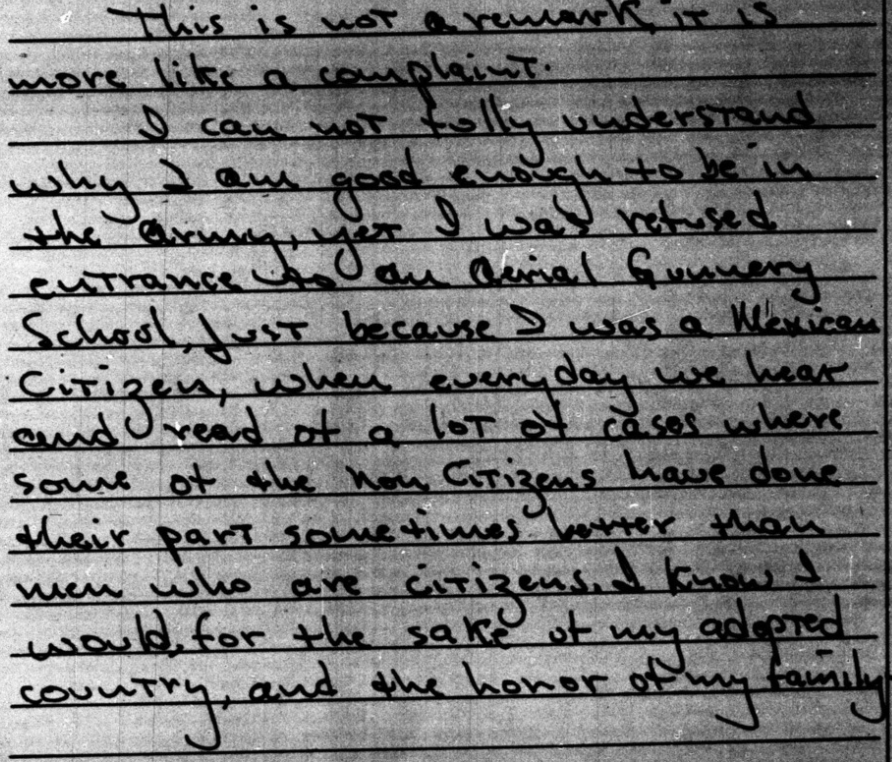 This is not a remark, it is
more like a complaint.
I can not fully understand
why I am good enough to be in
the army, yet I was refused
entrance to an Aerial Gunnery
School, Just because I was a Mexican
Citizen, when everyday we hear
and read of a lot of cases where
some of the non Citizens have done
their part sometimes better than
men who are citizens. I know I
would, for the sake of my adopted
country, and the honor of my family